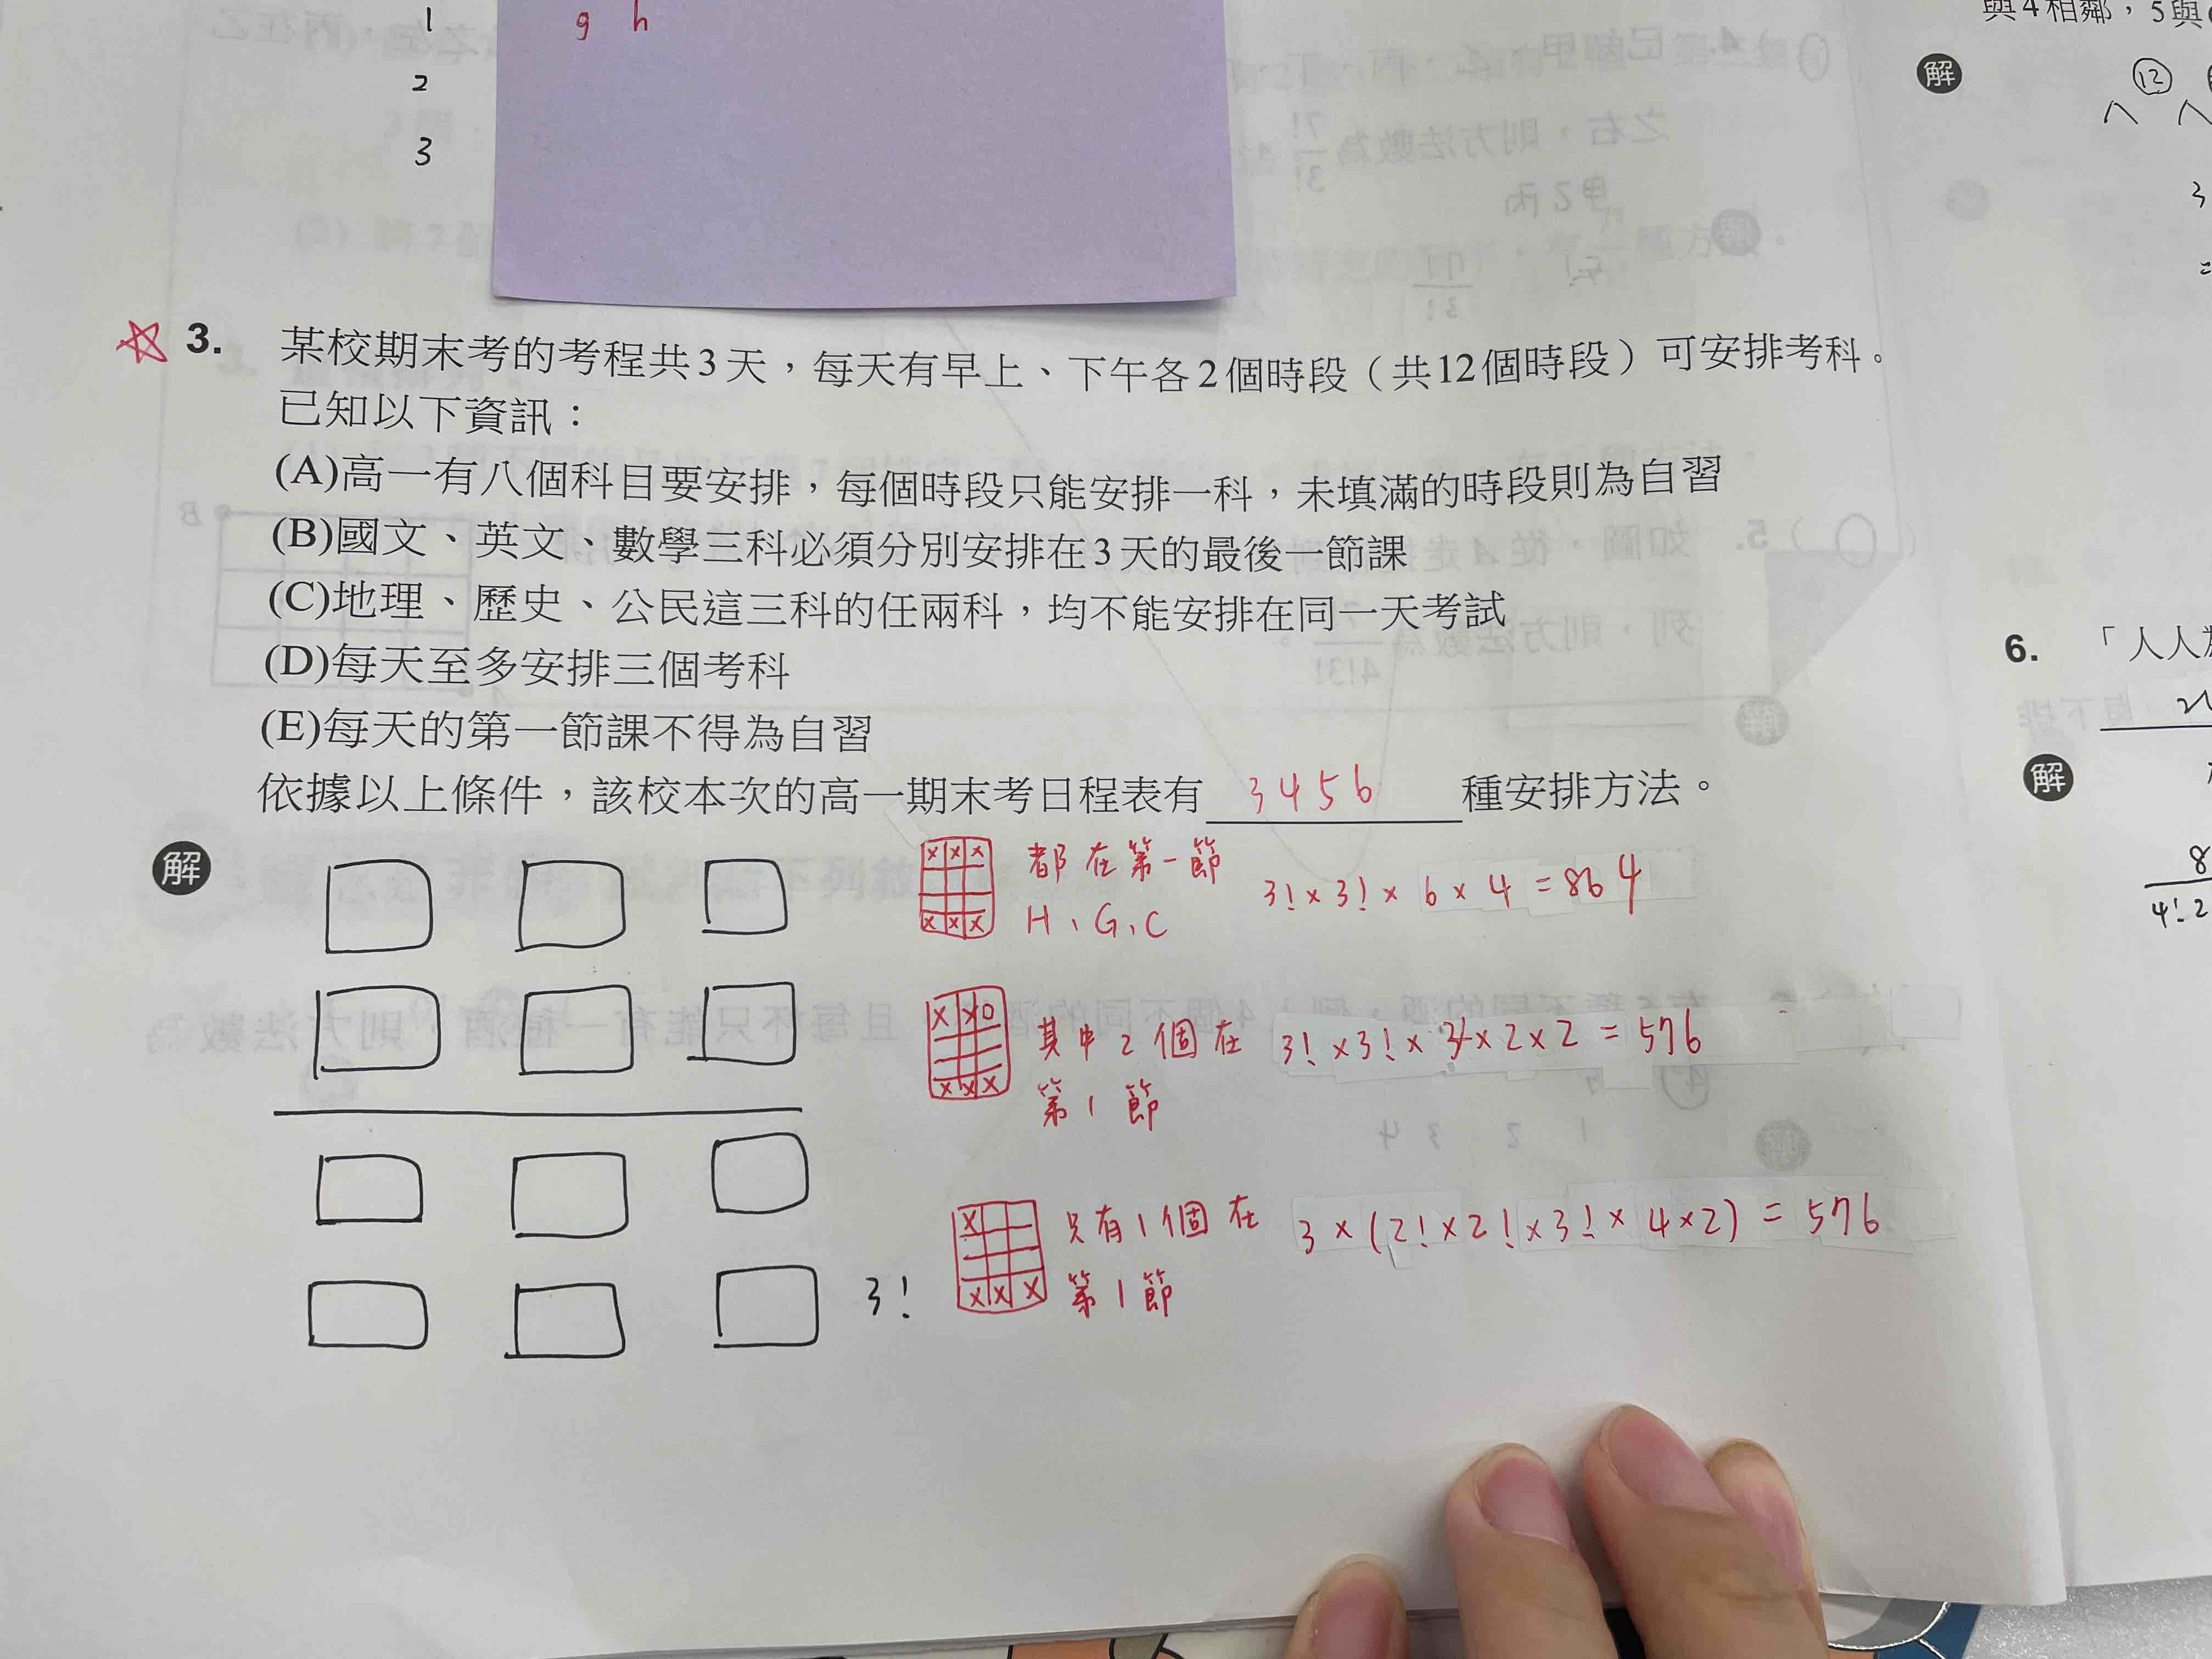 1
g h
2
3
與4相鄰，5與
解
12
3
=
☆ 3. 某校期末考的考程共3天，每天有早上、下午各2個時段（共12個時段）可安排考科。
已知以下資訊：
(A)高一有八個科目要安排，每個時段只能安排一科，未填滿的時段則為自習
(B)國文、英文、數學三科必須分別安排在3天的最後一節課
(C)地理、歷史、公民這三科的任兩科，均不能安排在同一天考試
(D)每天至多安排三個考科
(E)每天的第一節課不得為自習
依據以上條件，該校本次的高一期末考日程表有 3456 種安排方法。
解
x x x
x x x
都在第一節
H、G、C
3! × 3! × 6 × 4 = 864
x x o
x x x
其中2個在
第1節
3! × 3! × 3! × 2 × 2 = 576
x
x x x
只有1個在
第1節
3 × (2! × 2! × 3! × 4 × 2) = 576
3!
6. 「人人
解
8
4! 2